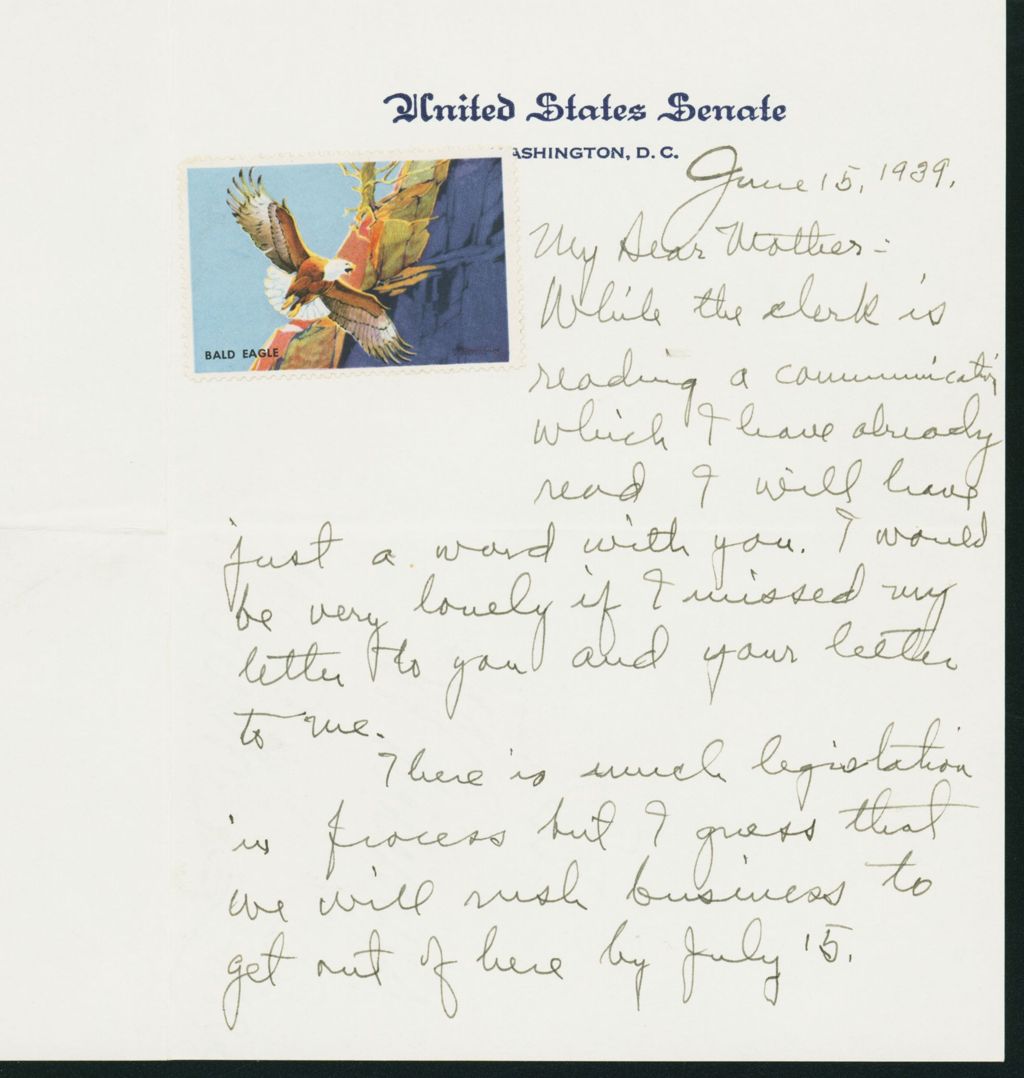 United States Senate
ASHINGTON, D. C.
June 15, 1939.
BALD EAGLE
My Dear Mother:-
While the clerk is
reading a communication
which I have already
read I will have
just a word with you. I would
be very lonely if I missed my
letter to you and your letter
to me.
There is much legislation
in process but I guess that
we will rush business to
get out of here by July 15.